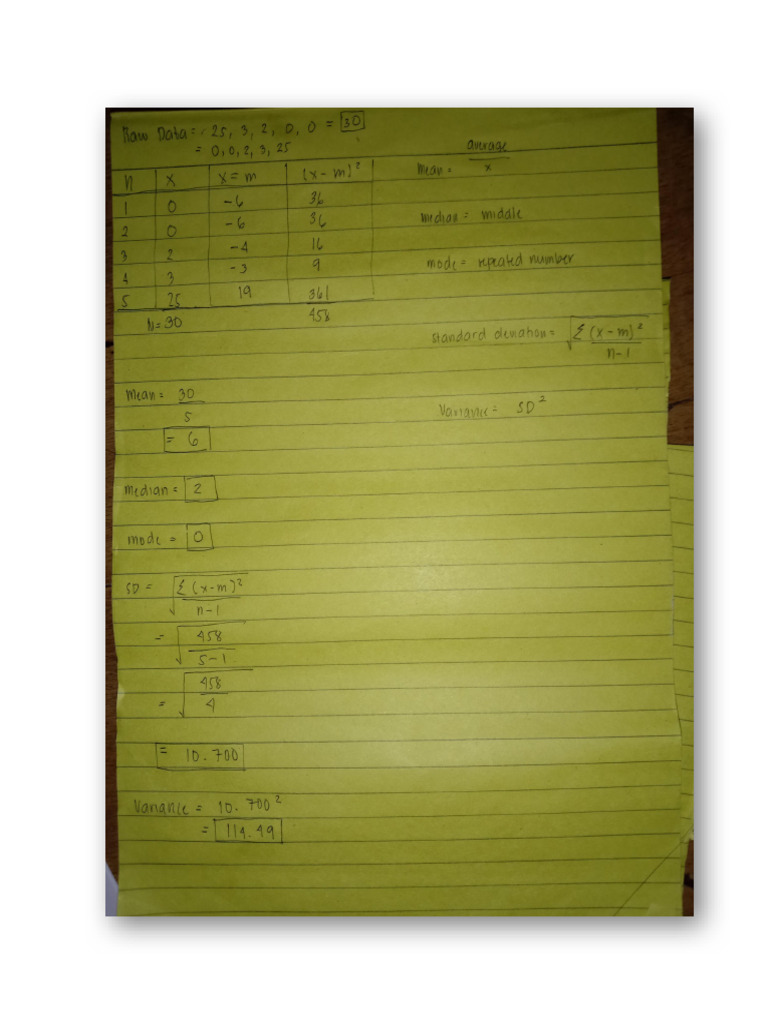 Raw Data = 25, 3, 2, 0, 0 = 30
= 0, 0, 2, 3, 25
n x x = m (x - m)²
1 0 -6 36
2 0 -6 36
3 2 -4 16
4 3 -3 9
5 25 19 361
N = 30 458
mean = average
x
median = middle
mode = repeated number
standard deviation = √ Σ (x - m)²
n - 1
Variance = SD²
mean = 30
5
= 6
median = 2
mode = 0
SD = √ Σ (x - m)²
n - 1
= √ 458
5 - 1
= √ 458
4
= 10.700
Variance = 10.700²
= 114.49